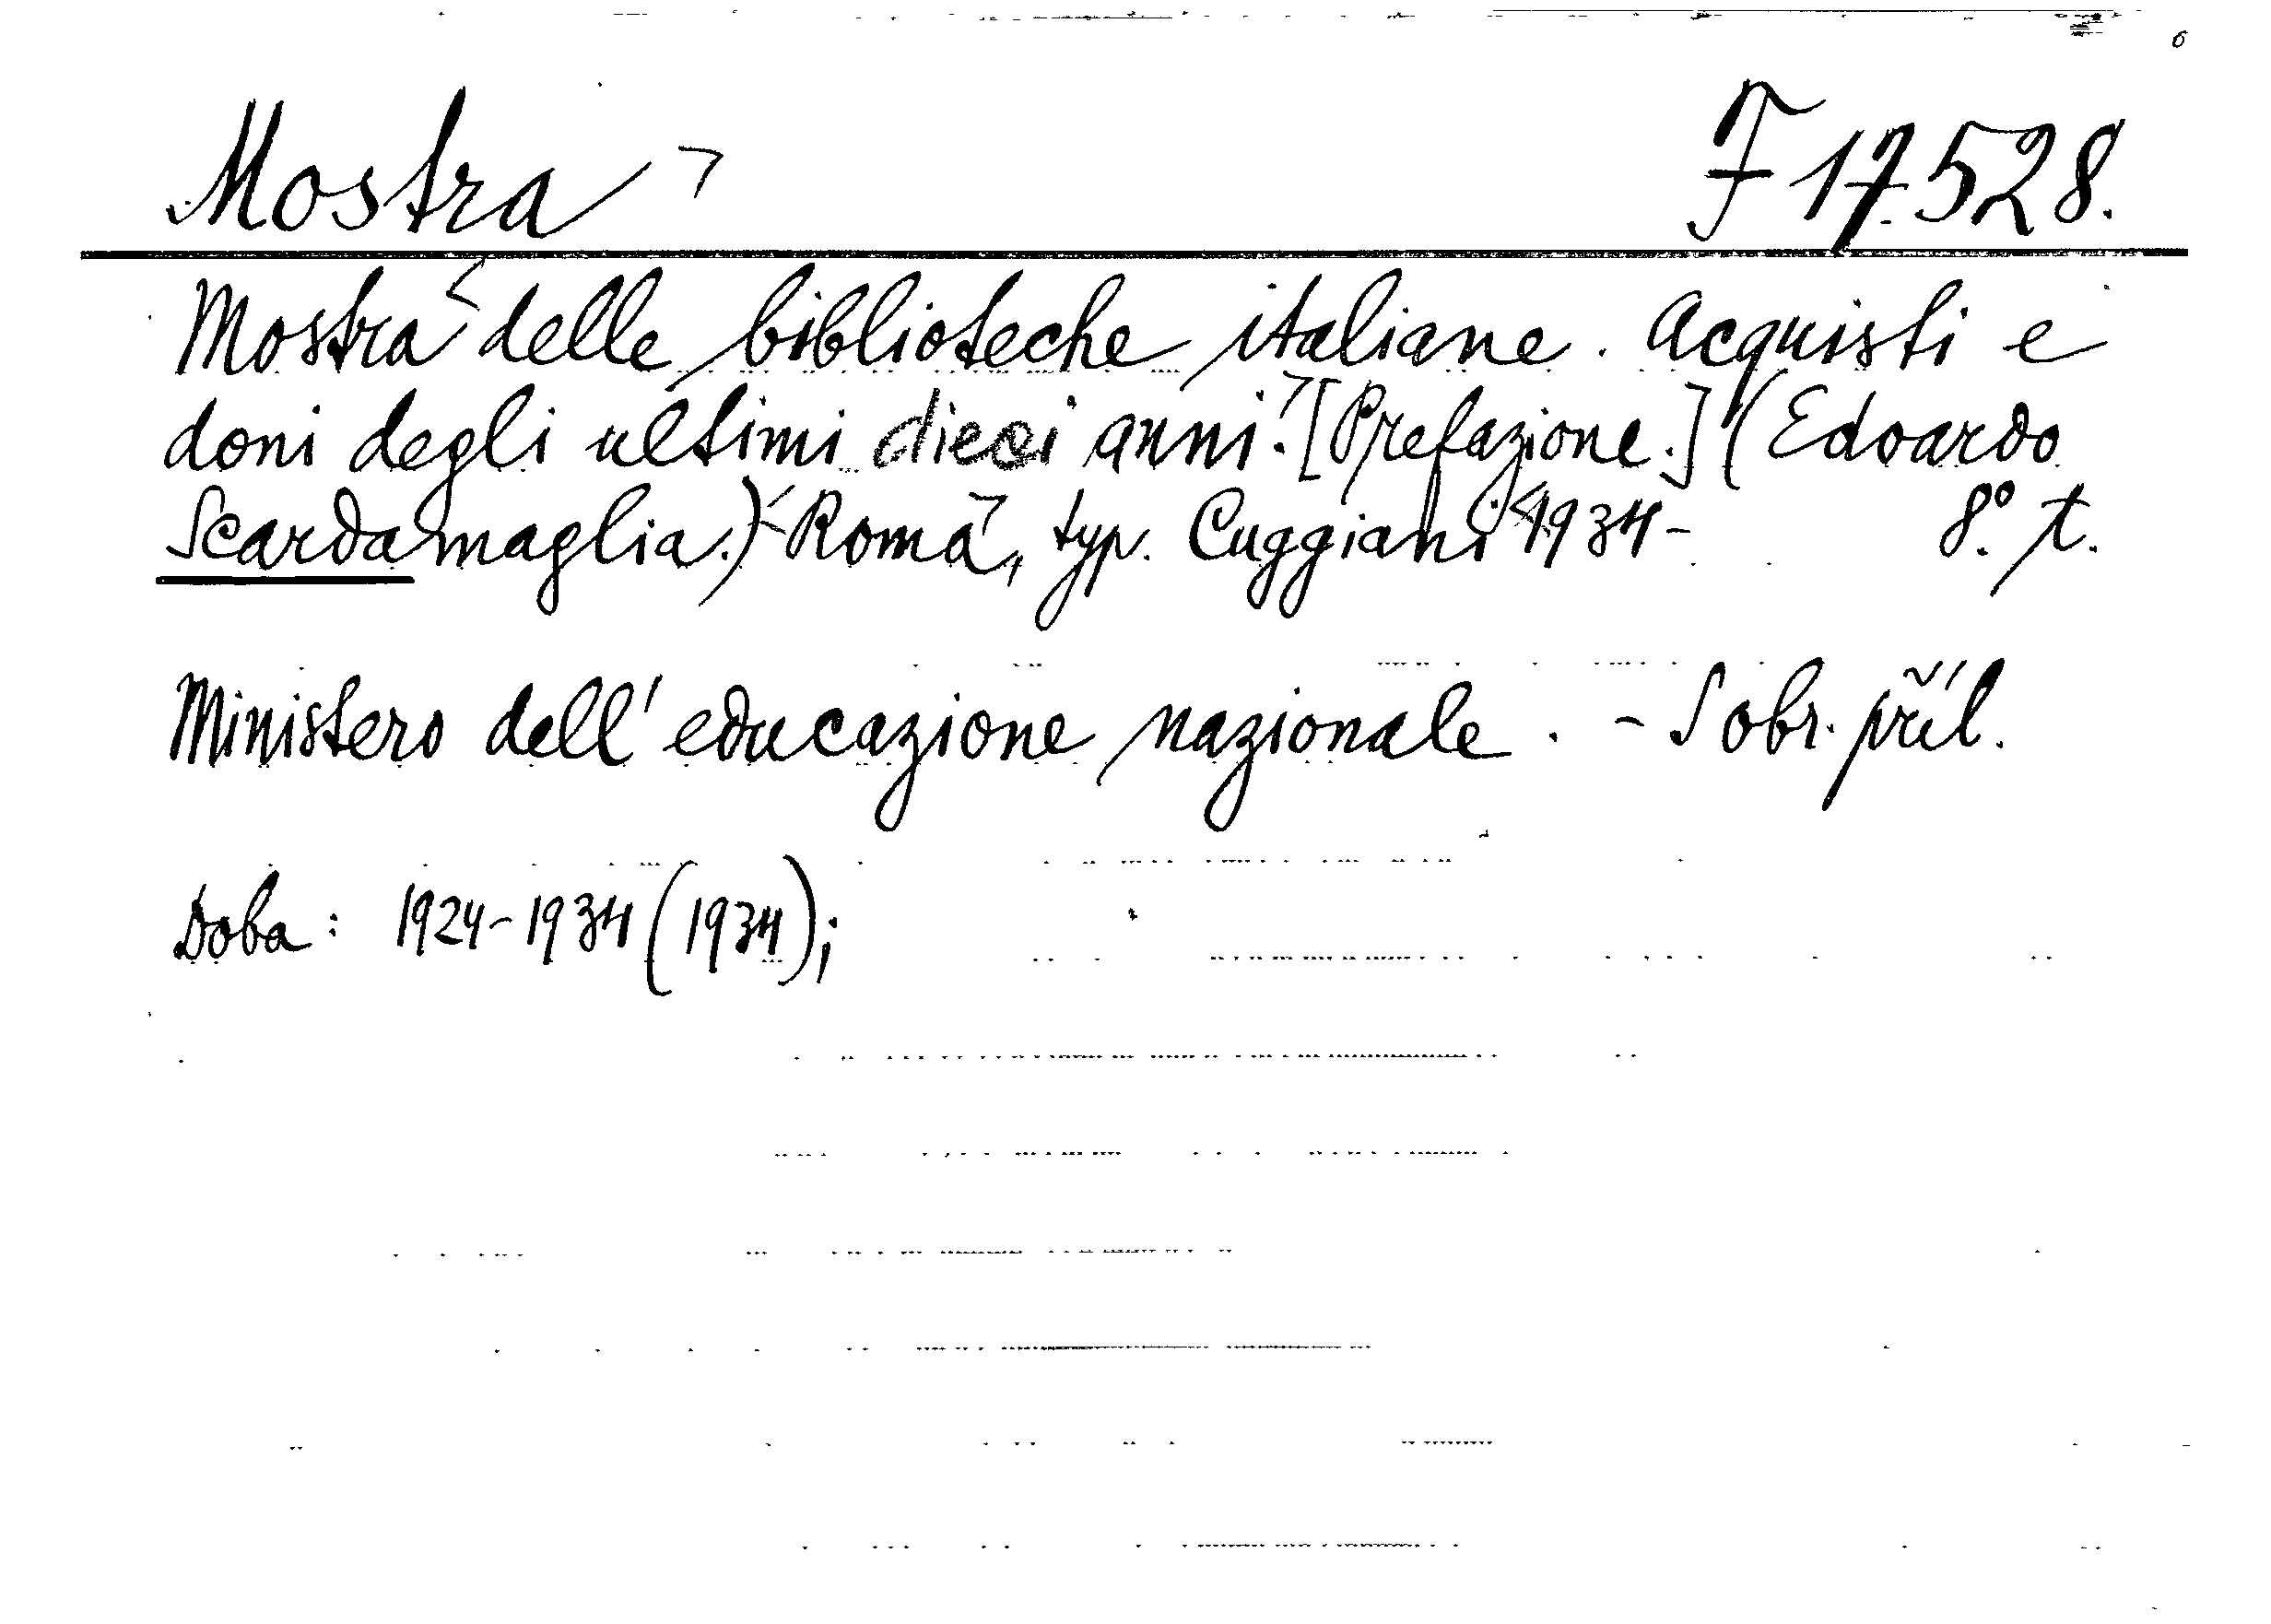 Mostra F 17.528.
Mostra delle biblioteche italiane. Acquisti e
doni degli ultimi dieci anni. [Prefazione.] (Edoardo
Scardamaglia.) Roma, typ. Cuggiani 1934- 8°. t.
Ministero dell' educazione nazionale. - S obr. příl.
Doba: 1924-1934 (1934);